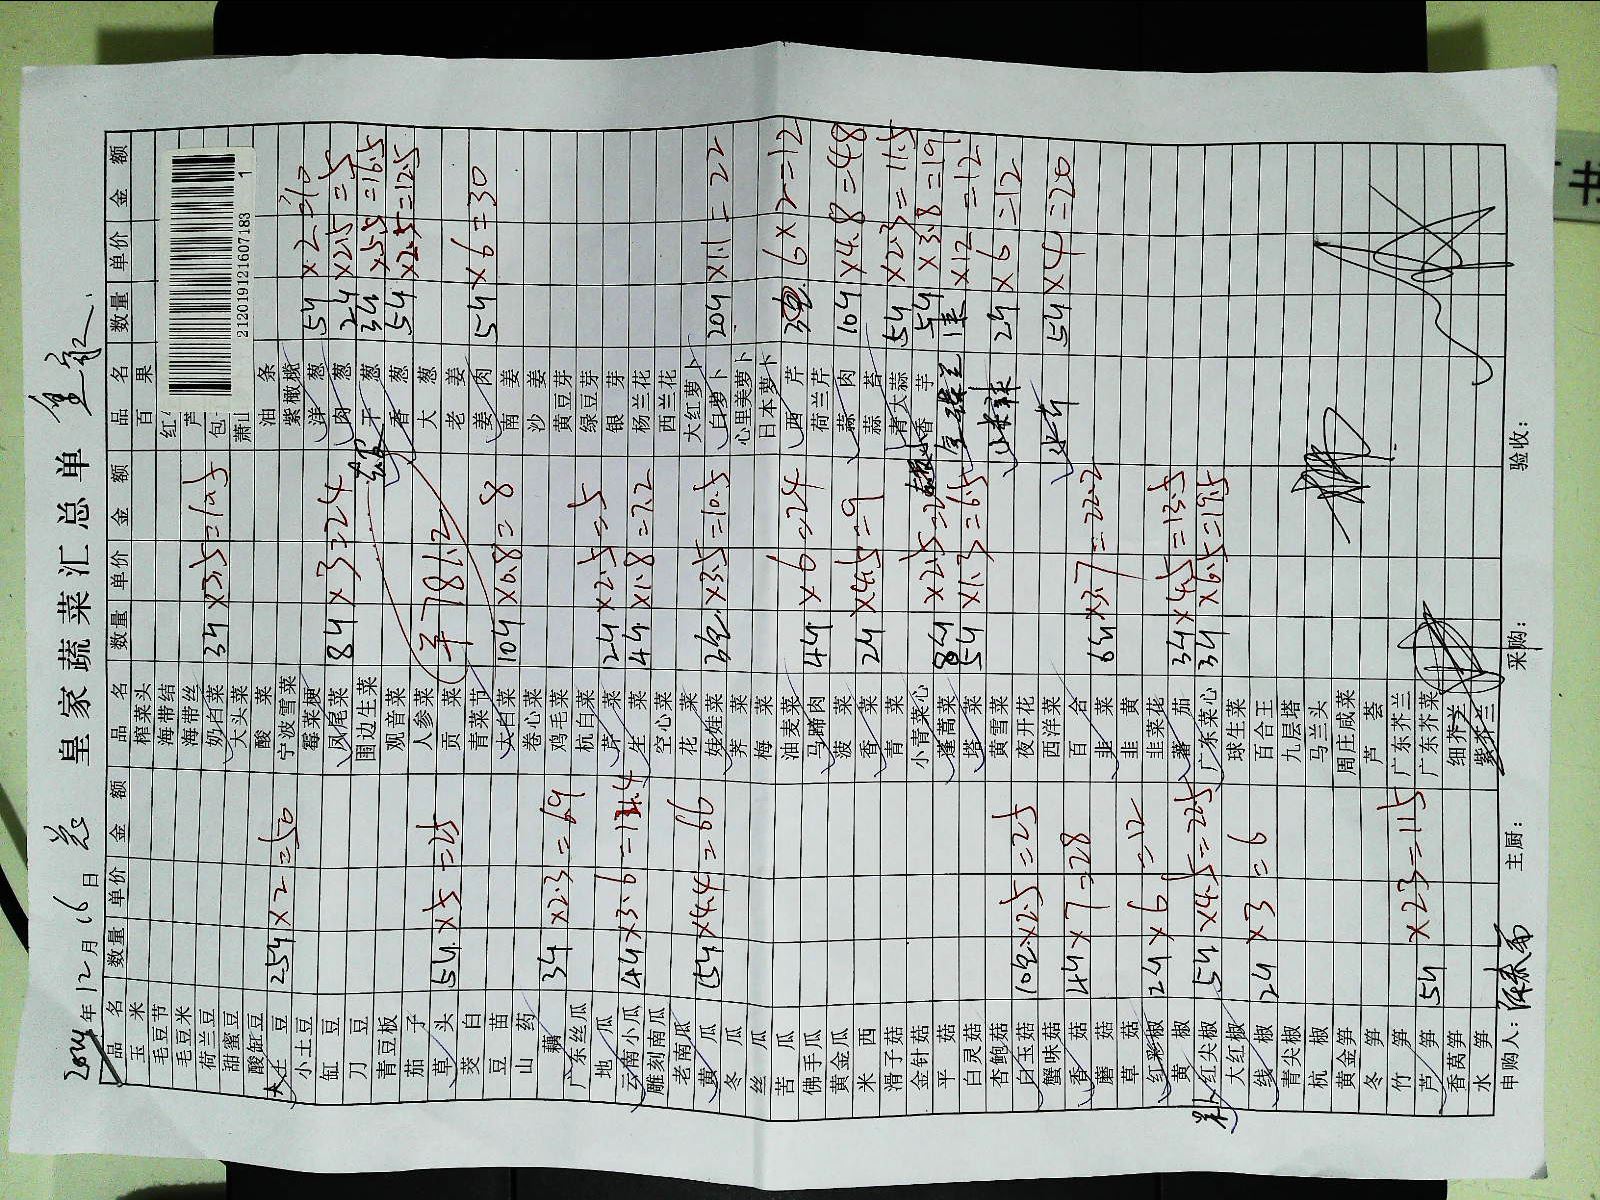 皇家蔬菜汇总单
2019年12月16日
品名 数量 单价 金额 品名 数量 单价 金额 品名 数量 单价 金额
玉米 榨菜头 百果
毛豆节 海带结 红
毛豆米 海带丝 芦
荷兰豆 奶白菜 3斤×3.5=10.5 包
甜蜜豆 大头菜 萧山 2120191216071 83 1
酸缸豆 酸菜 油条
大土豆 25斤×2=50 宁波雪菜 紫橄榄
小土豆 霉菜梗 洋葱 5斤×2=10
缸豆 凤尾菜 8斤×3=24 肉葱 2斤×2.5=5
刀豆 围边生菜 干葱 3斤×5.5=16.5
青豆板 观音菜 香葱 5斤×2.5=12.5
茄子 人参菜 大葱
草头 5斤×5=25 贡菜 ¥781.2 老姜
茭白 青菜节 姜肉 5斤×6=30
豆苗 大白菜 10斤×0.8=8 南姜
山药 卷心菜 沙姜
藕 3斤×2.3=6.9 鸡毛菜 黄豆芽
广东丝瓜 杭白菜 绿豆芽
地瓜 芹菜 2斤×2.5=5 银芽
云南小瓜 4斤×3.6=14.4 生菜 4斤×1.8=7.2 杨兰花
雕刻南瓜 空心菜 西兰花
老南瓜 花菜 大红萝卜
黄瓜 15斤×4.4=66 娃娃菜 3包×3.5=10.5 白萝卜 20斤×1.1=22
冬瓜 荠菜 心里美萝卜
丝瓜 梅菜 日本萝卜
苦瓜 油麦菜 西芹 6×2=12
佛手瓜 马蹄肉 4斤×6=24 荷兰芹
黄金瓜 菠菜 蒜肉 10斤×4.8=48
米西 香菜 2斤×4.5=9 蒜苔
滑子菇 青菜 老大蒜 5斤×2.3=11.5
金针菇 小青菜心 香芋 5斤×3.8=19
平菇 蓬蒿菜 8斤×2.5=20 ×12=12
白灵菇 塔菜 5斤×1.3=6.5
杏鲍菇 黄雪菜 2斤×6=12
白玉菇 10包×2.5=25 夜开花
蟹味菇 西洋菜 5斤×4=20
香菇 4斤×7=28 百合
蘑菇 韭菜 6斤×3.7=22.2
草菇 韭黄
红彩椒 2斤×6=12 韭菜花
黄椒 蕃茄 3斤×4.5=13.5
红尖椒 5斤×4.5=22.5 广东菜心 3斤×6.5=19.5
大红椒 球生菜
线椒 2斤×3=6 百合王
青尖椒 九层塔
杭椒 马兰头
黄金笋 周庄咸菜
冬笋 芦荟
竹笋 广东芥兰
芦笋 5斤×23=115 广东芥菜
香莴笋 细芥兰
水笋 紫芥兰
申购人: 主厨: 采购: 验收:
书